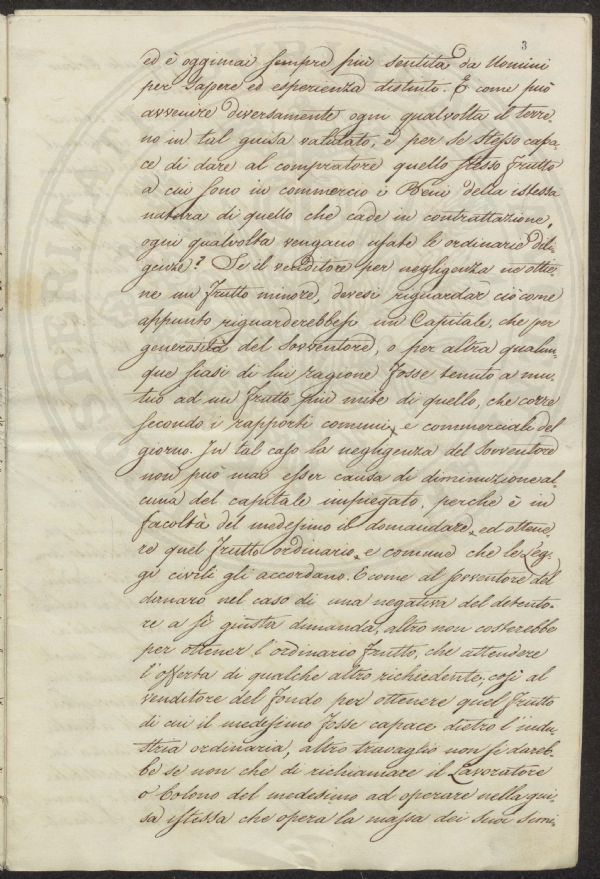 3
ed è oggimai sempre più sentita da Uomini
per sapere ed esperienza distinto. E come può
avvenire diversamente ogni qualvolta il terre,
no in tal guisa valutato, è per se stesso capa,
ce di dare al compratore quello stesso frutto
a cui sono in commercio i Beni della istessa
natura di quello che cade in contrattazione,
ogni qualvolta vengano usate le ordinarie dili,
genze? Se il venditore per negligenza ne ottie,
ne un frutto minore, devesi riguardar ciò come
appunto riguarderebbesi un Capitale, che per
generosità del Sovventore, o per altra qualun,
que siasi di lui ragione fosse tenuto a mu,
tuo ad un frutto più mite di quello, che corre
secondo i rapporti comuni, e commerciale del
giorno. In tal caso la negligenza del Sovventore
non può mai esser causa di diminuzione al,
cuna del capitale impiegato, perchè è in
facoltà del medesimo il domandare, ed ottene,
re quel frutto ordinario, e comune che le Leg,
gi civili gli accordano. E come al sovventore del
danaro nel caso di una negativa del detento,
re a sì giusta dimanda, altro non costerebbe
per ottener l'ordinario frutto, che attendere
l'offerta di qualche altro richiedente; così al
venditore del fondo per ottenere quel frutto
di cui il medesimo fosse capace dietro l'indu,
stria ordinaria, altro travaglio non si dareb,
be se non che di richiamare il Lavoratore
o Colono del medesimo ad operare nella gui,
sa istessa che opera la massa dei suoi simi,
PERITATI